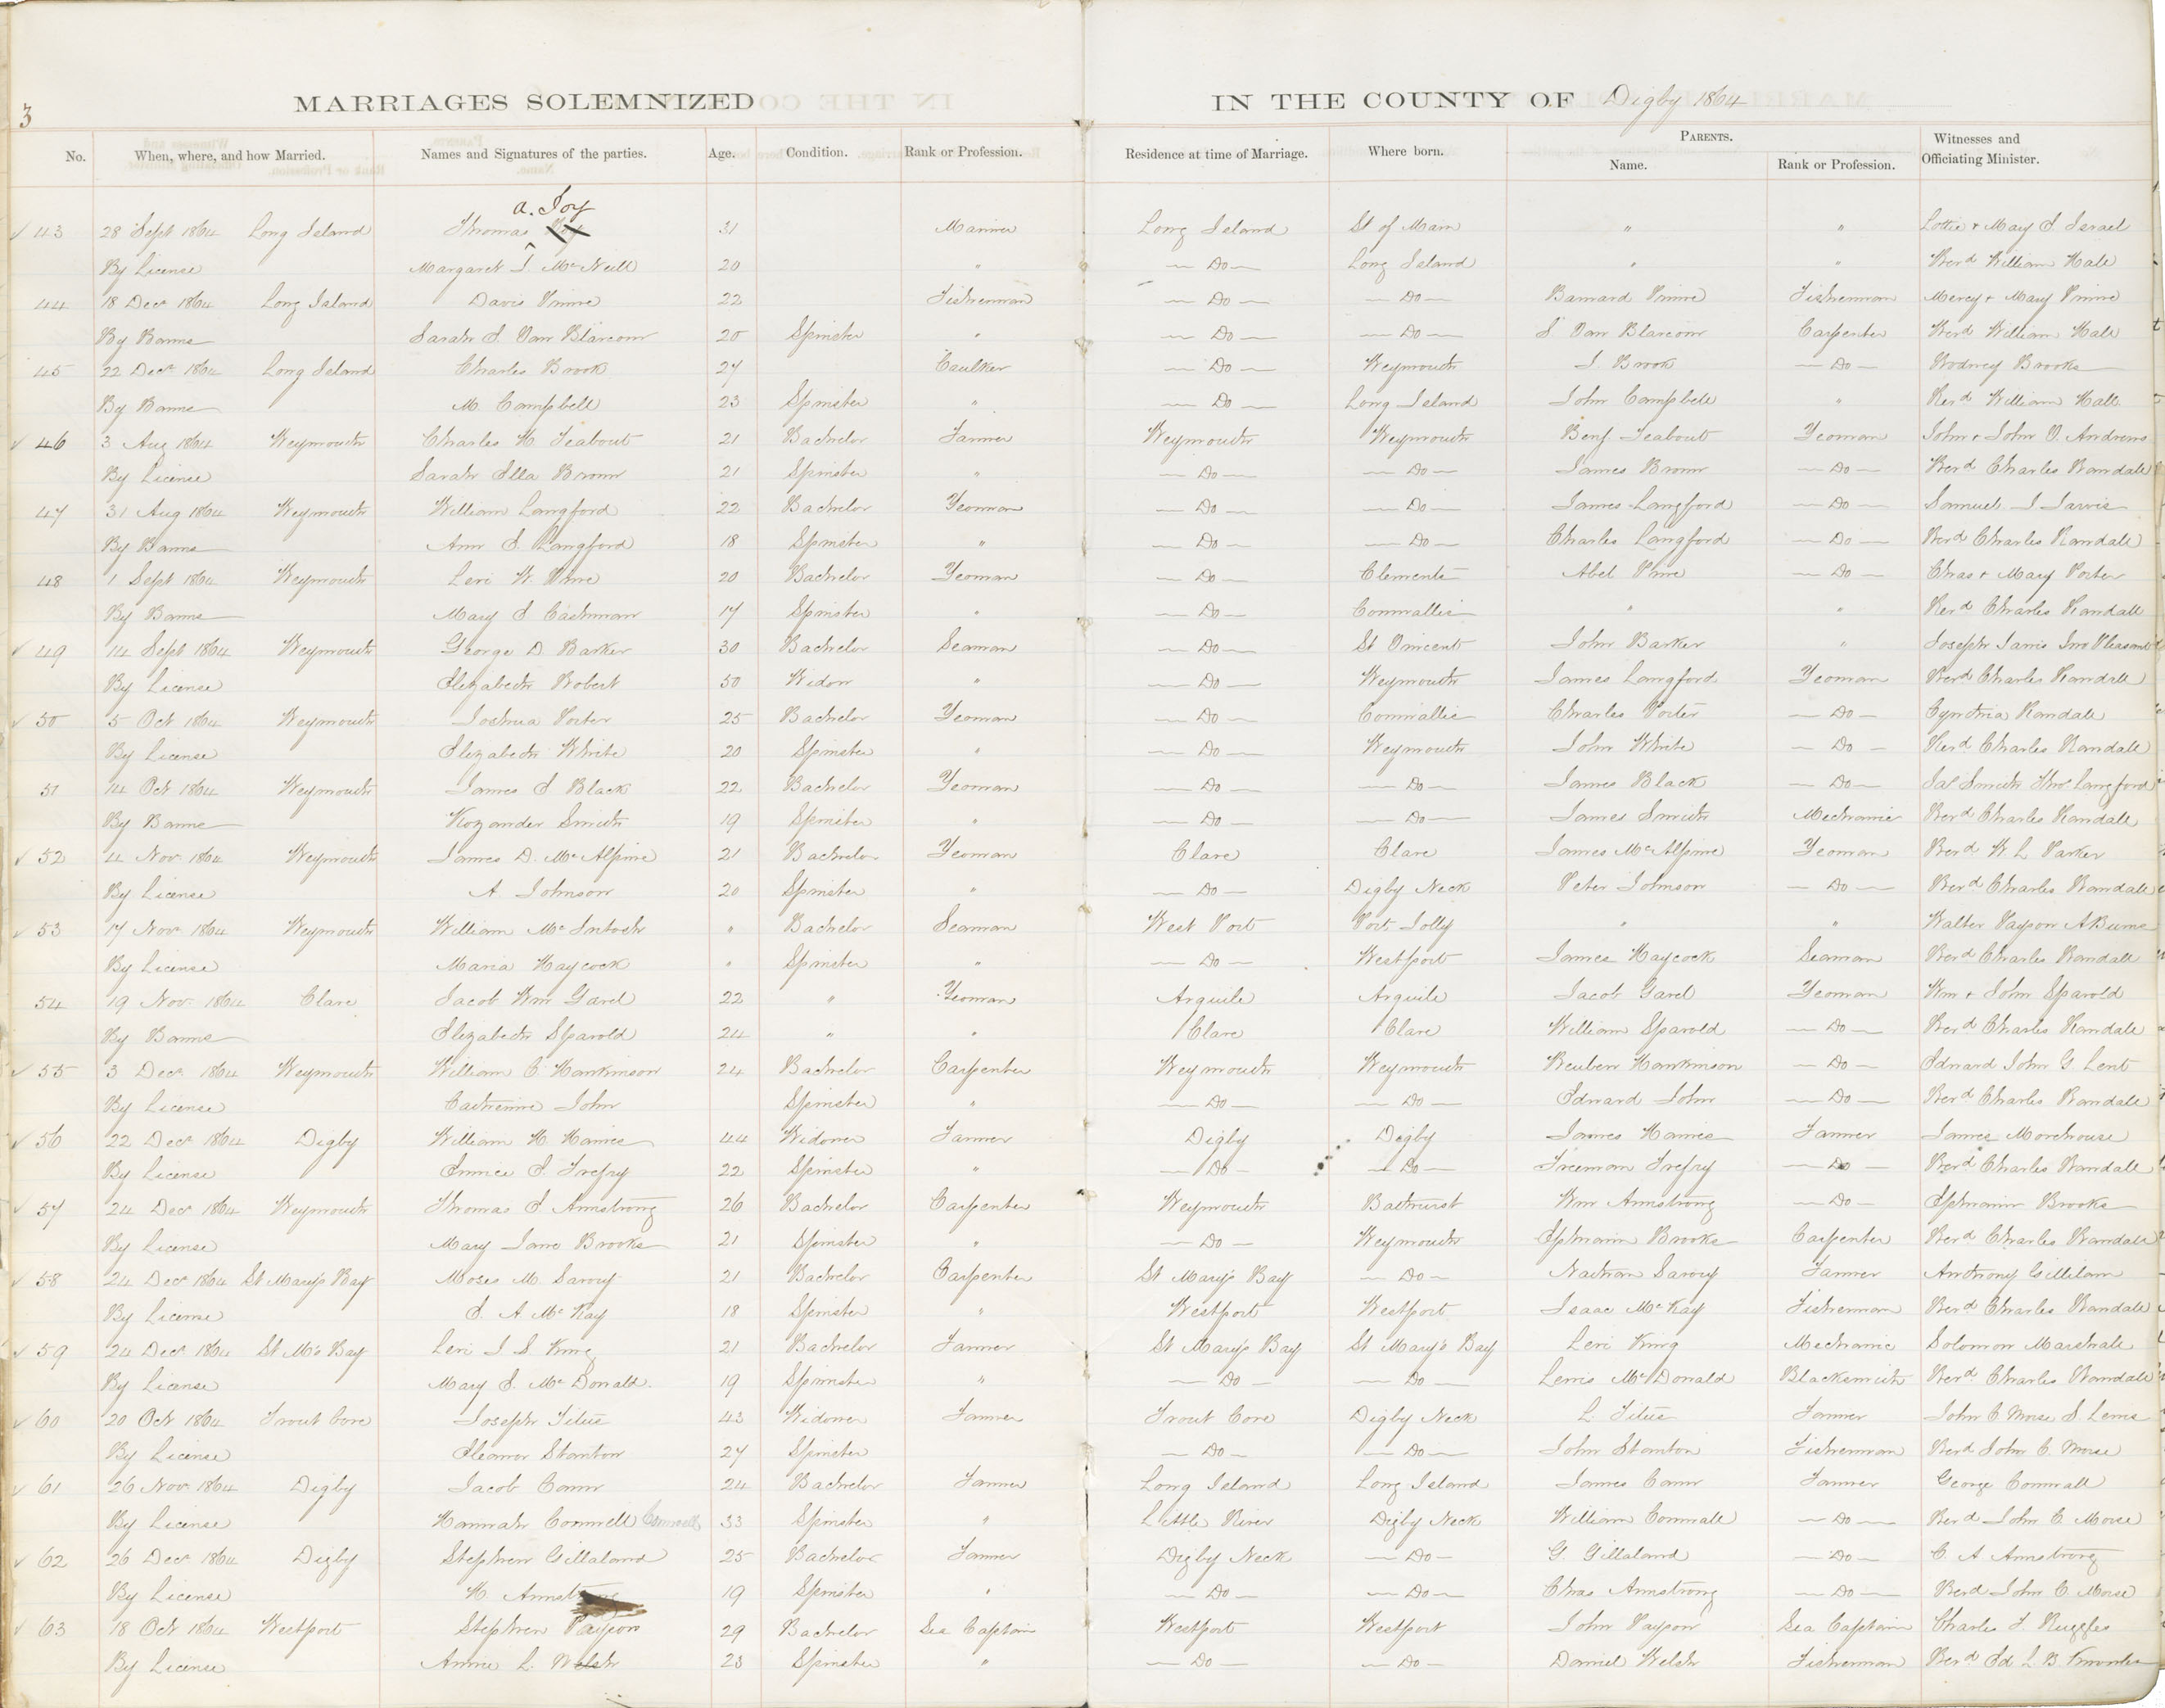 3
MARRIAGES SOLEMNIZED IN THE COUNTY OF Digby 1864
No. When, where, and how Married. Names and Signatures of the parties. Age. Condition. Rank or Profession. Residence at time of Marriage. Where born. PARENTS. Name. Rank or Profession. Witnesses and Officiating Minister.
a. Joy
43 28 Sept 1864 Long Island Thomas 31 Mariner Long Island St of Main " " Lottie & May E Israel
By License Margaret J. McNeill 20 " Do Long Island " " Revd William Hall
44 18 Decr 1864 Long Island Davis Prime 22 Fisherman Do Do Barnard Prime Fisherman Mercy & Mary Prime
By Banns Sarah E Van Blarcom 20 Spinster " Do Do S Van Blarcom Carpenter Revd William Hall
45 22 Decr 1864 Long Island Charles Brook 27 Caulker Do Weymouth J. Brook Do Rodney Brooks
By Banns M. Campbell 23 Spinster " Do Long Island John Campbell " Revd William Hall
46 3 Aug 1864 Weymouth Charles H Teabout 21 Bachelor Farmer Weymouth Weymouth Benj. Teabout Yeoman John & John V. Andrews
By License Sarah Ella Brown 21 Spinster " Do Do James Brown Do Revd Charles Randall
47 31 Aug 1864 Weymouth William Langford 22 Bachelor Yeoman Do Do James Langford Do Samuel J Jarvis
By Banns Ann E. Langford 18 Spinster " Do Do Charles Langford Do Revd Charles Randall
48 1 Sept 1864 Weymouth Levi W. Prime 20 Bachelor Yeoman Do Clements Abel Prime Do Chas & Mary Porter
By Banns Mary E Cashman 17 Spinster " Do Cornwallis " " Revd Charles Randall
49 14 Sept 1864 Weymouth George D Barker 30 Bachelor Seaman Do St Vincent John Barker " Joseph Jarvis Jno Pleasant
By License Elizabeth Robert 50 Widow " Do Weymouth James Langford Yeoman Revd Charles Randall
50 5 Oct 1864 Weymouth Joshua Porter 25 Bachelor Yeoman Do Cornwallis Charles Porter Do Cynthia Randall
By License Elizabeth White 20 Spinster " Do Weymouth John White Do Revd Charles Randall
51 14 Oct 1864 Weymouth James E Black 22 Bachelor Yeoman Do Do James Black Do Jas Smith Thos Langford
By Banns Rozander Smith 19 Spinster " Do Do James Smith Mechanic Revd Charles Randall
52 4 Nov 1864 Weymouth James D. McAlpine 21 Bachelor Yeoman Clare Clare James McAlpine Yeoman Revd W. L Parker
By License A. Johnson 20 Spinster " Do Digby Neck Peter Johnson Do Revd Charles Randall
53 17 Nov 1864 Weymouth William McIntosh " Bachelor Seaman West Port Port Jolly " " Walter Payson A Burns
By License Maria Haycock " Spinster " Do Westport James Haycock Seaman Revd Charles Randall
54 19 Nov 1864 Clare Jacob Wm Gavel 22 " Yeoman Arguile Arguile Jacob Gavel Yeoman Wm & John Sparold
By Banns Elizabeth Sparold 24 " " Clare Clare William Sparold Do Revd Charles Randall
55 3 Decr 1864 Weymouth William C. Hankinson 24 Bachelor Carpenter Weymouth Weymouth Reuben Hankinson Do Edward John G. Lent
By License Catherine John Spinster " Do Do Edward John Do Revd Charles Randall
56 22 Decr 1864 Digby William H. Haines 44 Widower Farmer Digby Digby James Haines Farmer James Morehouse
By License Eunice E. Trefry 22 Spinster " Do Do Freeman Trefry Do Revd Charles Randall
57 24 Decr 1864 Weymouth Thomas E Armstrong 26 Bachelor Carpenter Weymouth Bathurst Wm Armstrong Do Ephraim Brooks
By License Mary Jane Brooks 21 Spinster " Do Weymouth Ephraim Brooks Carpenter Revd Charles Randall
58 24 Decr 1864 St Mary's Bay Moses M Savory 21 Bachelor Carpenter St Mary's Bay Do Nathan Savory Farmer Anthony Gillilam
By License E. A McKay 18 Spinster " Westport Westport Isaac McKay Fisherman Revd Charles Randall
59 24 Decr 1864 St M's Bay Levi J S King 21 Bachelor Farmer St Mary's Bay St Mary's Bay Levi King Mechanic Solomon Marshall
By License Mary E. McDonald. 19 Spinster " Do Do Lewis McDonald Blacksmith Revd Charles Randall
60 20 Oct 1864 Trout Cove Joseph Titus 43 Widower Farmer Trout Cove Digby Neck L. Titus Farmer John C Morse S Lewis
By License Eleanor Stanton 27 Spinster Do Do John Stanton Fisherman Revd John C. Morse
61 26 Nov 1864 Digby Jacob Cann 24 Bachelor Farmer Long Island Long Island James Cann Farmer George Cornwall
By License Hannah Cornwell Cornwell 33 Spinster " Little River Digby Neck William Cornwall Do Revd John C. Morse
62 26 Decr 1864 Digby Stephen Gillaland 25 Bachelor Farmer Digby Neck Do G. Gillaland Do C. A Armstrong
By License H. Armstrong 19 Spinster " Do Do Chas Armstrong Do Revd John C. Morse
63 18 Oct 1864 Westport Stephen Payson 29 Bachelor Sea Captain Westport Westport John Payson Sea Captain Charles F. Ruggles
By License Annie L. Welsh 23 Spinster " Do Do Daniel Welsh Fisherman Revd Ed L. B. Knowles